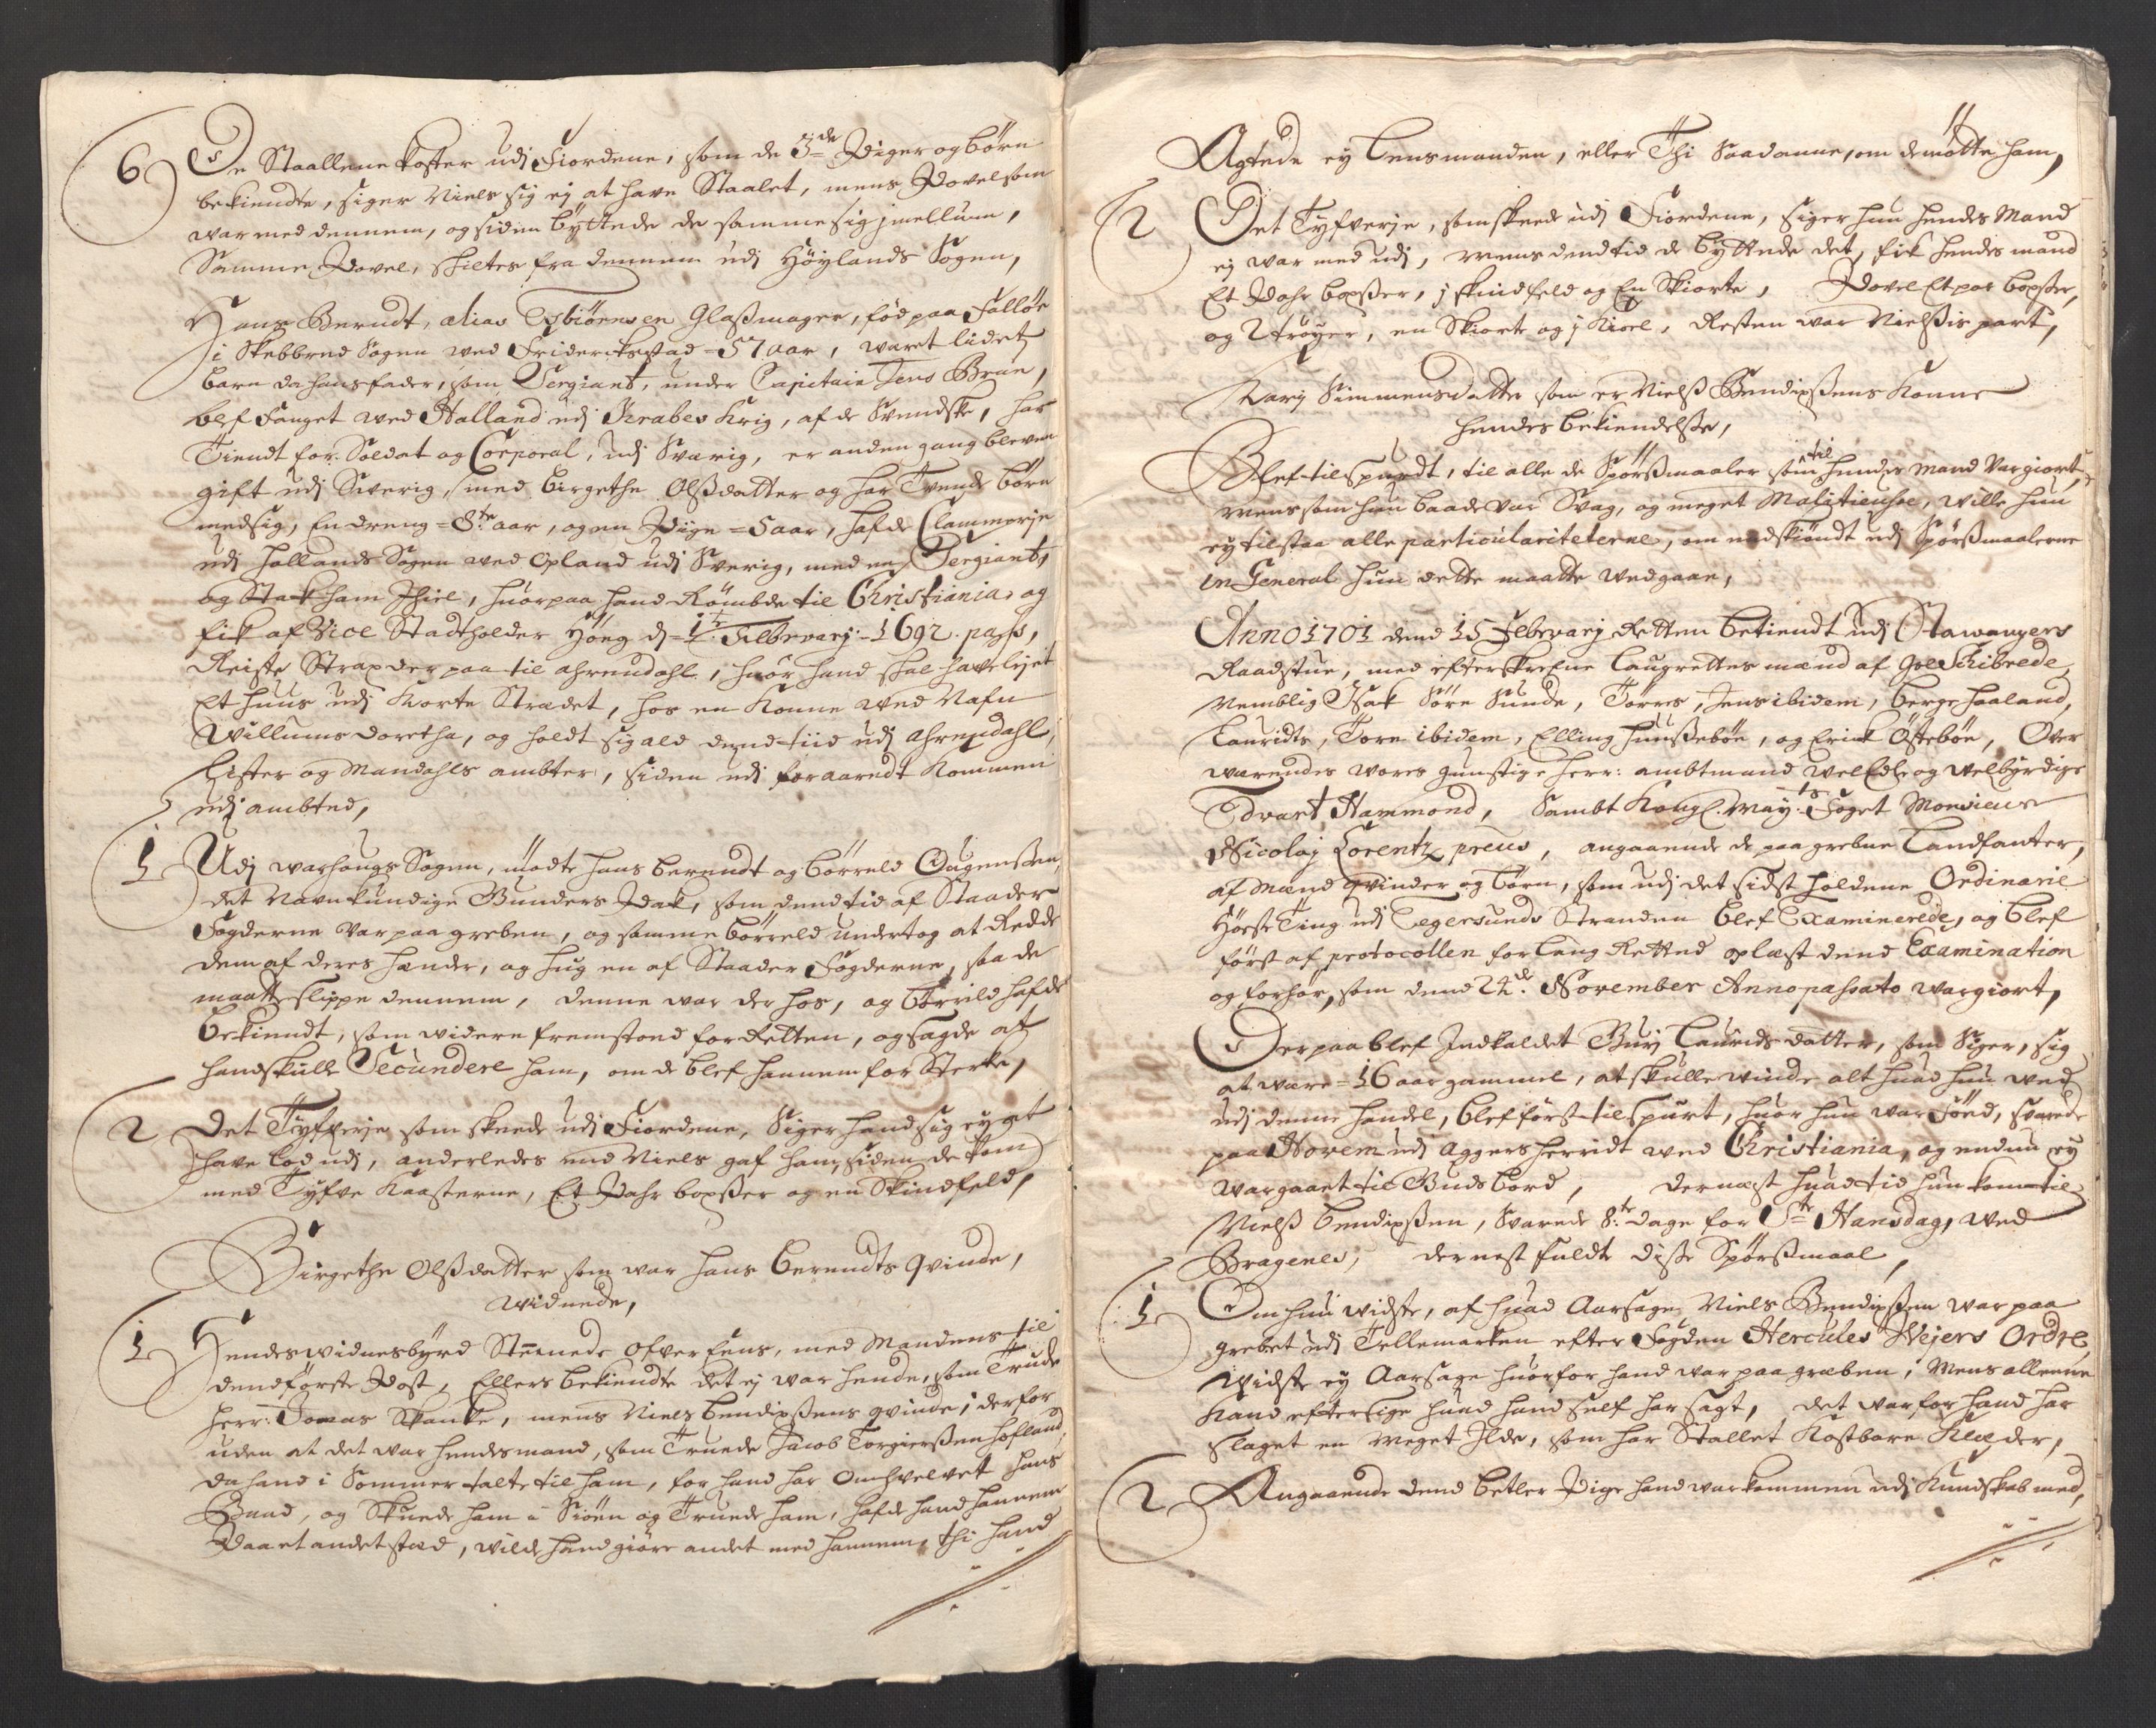 6 De Staallene koster udj Fiordene, som de 3de Piger og børn
bekiendte, siger Niels sig ej at have Staalet, mens Povel som
war med dennem, og siden byttede de samme sig jmellum,
Samme Povel, skiltes fra dennem udj Høylands Sogen,
Hans Berndt, alias Esbiørnsen Glaßmager, fød paa
i Skebbred Sogen wed Friderichstad = 57 aar, waret lidet
barn da hans fader, som Sergiant, under Capitain Jens Bran,
blef fanget wed Halland udj Krabes Krig, af de Svendske, har
Tiendt for Soldat og Corporal, udj Sverig, er anden gang bleven
gift udj Sverig, med Birgethe Olßdatter og har Tvende børn
med sig, En dreng = 8te aar, og en Pige = 5 aar, hafde Clammerje
udj Hollands Sogen wed Opland udj Sverig, med en Sergiant,
og Stak ham Jhiel, huorpaa hand Rømbde til Christiania, og
fik af Vice Stadtholder Høeg dj = 1te Febrvarij = 1692. pass,
Reiste Strax der paa til Ahrendahl, huor hand skal have lejet
Et huus udj Korte Strædet, hos en Konne wed Nafn
Willums Doretha, og holdt sig ald dend tiid udj Ahrendahl,
Lister og Mandahls ambter, siden udj foraaret kommen
udj ambted,
1 Udj warhougs Sogen, møtte hans berendt og børreld Ougensen,
det Navnkundige Gunders Pak, som dend tid af Staader
Fogderne var paa greben, og samme børreld undertog at Redde
dem af deres hender, og hug en af Staader Fogderne, saa de
maatte slippe dennem, denne war der hos, og børrild hafde
bekiendt, som widere fremstoed for Retten, og sagde at
hand skulle Secundere ham, om de blef hannem for sterke,
2 Det Tyfverje som skeede udj Fiordene, Siger hand sig ey at
have lod udj, anderledes end Niels gaf ham, siden de kom
med Tyfve Kaasterne, Et Pahr boxser og en Skindfeld,
Birgethe Olßdatter som war Hans Berendts qvinde,
widnede,
1 Hendes widnesbyrd Stemmede ofver Eens, med Mandens til
dend første Post, Ellers bekiendte det ej war hende, som Truede
herr: Tomas Skanke, mens Niels bendixsens qvinde, derfor
uden at det war hendes mand, som Truede Jacob Torgiersen Hofland,
da hand i Sommer talte til ham, for hand har omhvelvet hans
Baad, og Skuede ham i Siøen og Truede ham, hafde hand hannem
Paa et andet sted, wilde hand giøre andet med hannem, thi hand
Agtede ey Lensmanden, eller Thi Saadanne, om de møtte ham,
2 Det Tyfverje, som skeede udj Fiordene, siger hun hendes Mand
ej war med udj, mens dend tid de byttede det, fik hendes mand
Et Pahr boxser, j skindfeld og En Skiorte, Povel Et par boxser,
og 2 trøyer, en Skiorte og j Kioel, Resten war Nielsis part,
Karj Simmensdatter som er Nielß Bendixßens Konne
hendes bekiendelsse,
Blef tilspurdt, til alle de Spørßmaaler som til hendes mand var giort,
mens som hun baade var Svag, og meget Malitieuse, wille hun
ey tilstaa alle particulariteterne, om endskiøndt udj Spørßmaalerne
in General hun dette maatte wedgaae,
Anno 1701 dend 15 Febrvarij Retten betiendt udj Stawangers
Raadstue, med efterskrefne laugrettes mænd af Soe Schibrede
Nemblig Isak Søre Sunde, Torres, Jens ibidem, berge haaland,
Lauridts, Tore ibidem, Elling huusebøe, og Erick Østebøe, Over
werendes wores gunstige herr: ambtmand wel Edle og welbyrdige
Edvart Hammond, Sambt Kongl: May:ts Foget Monsieur
Nicolaj Lorentz preus, angaaende de paa grebne Landfanter,
af Mænd qvinder og børn, som udj det sidst holdene Ordinarie
Høste Ting udj Eegersunds Stranden blef Examinerede, og blef
først af protocollen for Laug Retted oplæst dend Examination
og forhør, som dend 22de November Anno passato war giort,
Der paa blef Indkaldet Gurj Lauridsdatter, som Siger, sig
at were = 16 aar gammel, at skulle winde alt huad hun wed
udj denne handel, blef først tilspurt, huor hun war føed, svarede
paa Horem udj Aggersherridt wed Christiania, og endnu ey
war gaaet til Guds bord, dernæst huad tid hun kom til
Nielß Bendixßen, Svarede 8te dage for Ste Hansdag, wed
Bragenes, dernest fuldte disse Spørßmaal,
1 Om hun widste, af huad Aarsage, Niels Bendixsen war paa
grebet udj Tellemarken efter Fogden Hercules Wejers Ordre,
widste ey Aarsage huorfor hand war paa greben, Mens alleene
kand eftersige huad hand self har sagt, det war for hand har
slaget en meget Ilde, som har Staalet Kostbare Klæder,
2 Angaaende dend betler Pige hand war kommen udj kundskab med,